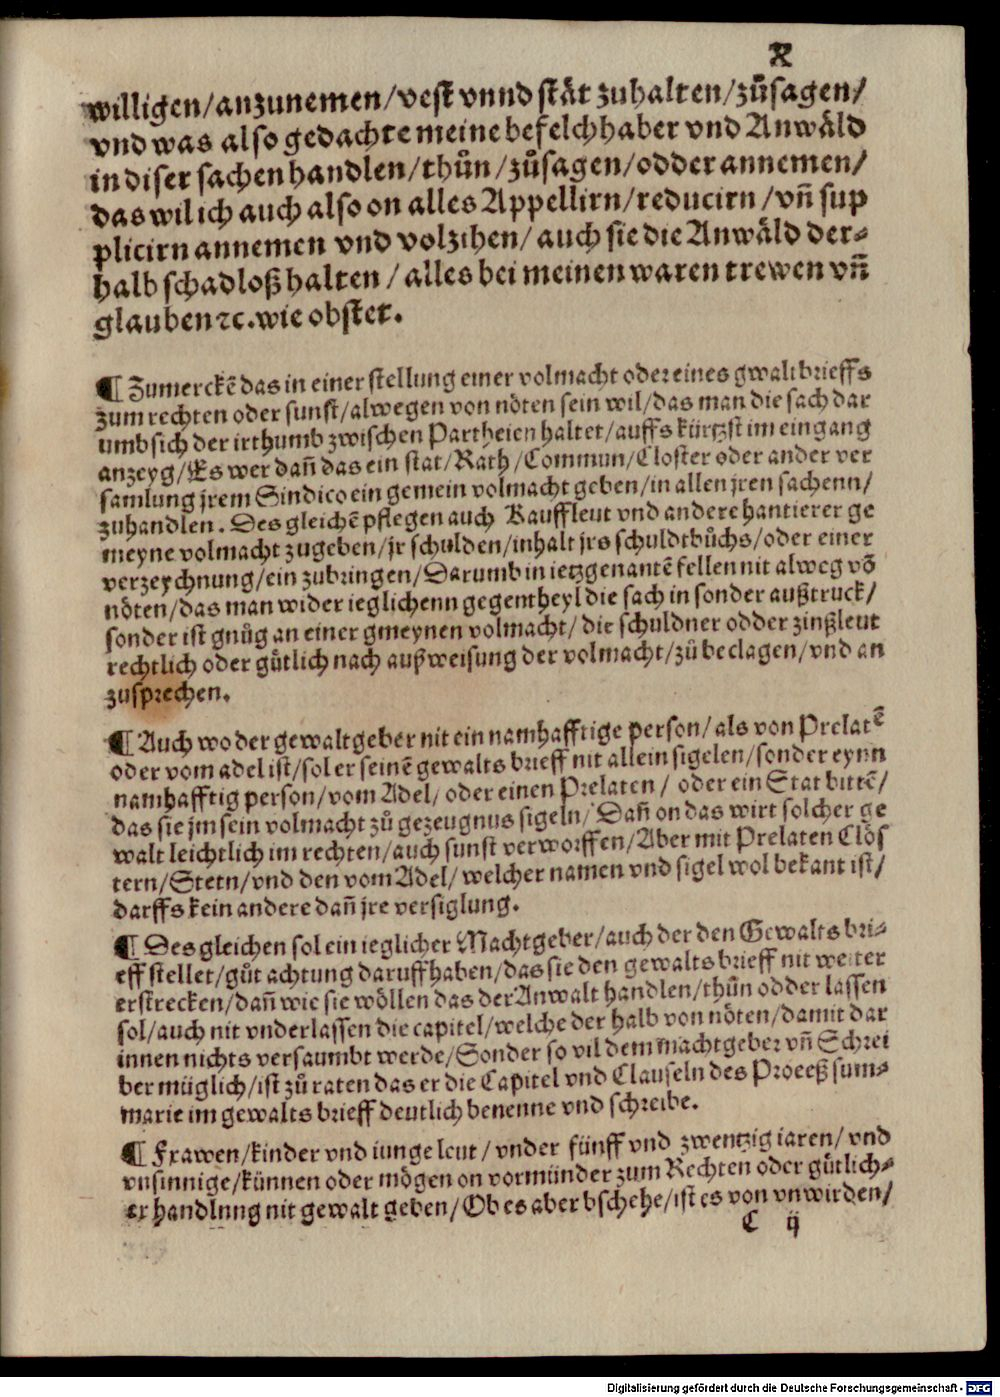 X
willigen/anzunemen/vest vnnd stät zuhalten/zůsagen/
vnd was also gedachte meine befelchhaber vnd Anwäld
in diser sachen handlen/thůn/zůsagen/odder annemen/
das wil ich auch also on alles Appellirn/reducirn/vñ sup
plicirn annemen vnd volzihen/auch sie die Anwäld der-
halb schadloß halten/alles bei meinen waren trewen vñ
glauben ꝛc. wie obstet.
¶ Zumerckẽ das in einer stellung einer volmacht oder eines gwaltbrieffs
zum rechten oder sunst/alwegen von nöten sein wil/das man die sach dar
umb sich der irthumb zwischen Partheien haltet/auffs kürtzst im eingang
anzeyg/Es wer dañ das ein stat/Rath/Commun/Closter oder ander ver
samlung jrem Sindico ein gemein volmacht geben/in allen jren sachenn/
zuhandlen. Des gleichẽ pflegen auch Kauffleut vnd andere hantierer ge
meyne volmacht zugeben/jr schulden/inhalt jrs schuldtbůchs/oder einer
verzeychnung/ein zubringen/Darumb in ietzgenantẽ fellen nit alweg võ
nöten/das man wider ieglichenn gegentheyl die sach in sonder außtruck/
sonder ist gnůg an einer gmeynen volmacht/die schuldner odder zinßleut
rechtlich oder gůtlich nach außweisung der volmacht/zů beclagen/vnd an
zusprechen.
¶ Auch wo der gewaltgeber nit ein namhafftige person/als von Prelatẽ
oder vom adel ist/sol er seinẽ gewalts brieff nit allein sigelen/sonder eynn
namhafftig person/vom Adel/oder einen Prelaten/oder ein Stat bittẽ/
das sie jm sein volmacht zů gezeugnus sigeln/Dañ on das wirt solcher ge
walt leichtlich im rechten/auch sunst verworffen/Aber mit Prelaten Clös
tern/Stetn/vnd den vom Adel/welcher namen vnd sigel wol bekant ist/
darffs kein andere dañ jre versiglung.
¶ Des gleichen sol ein ieglicher Machtgeber/auch der den Gewalts bri-
eff stellet/gůt achtung daruff haben/das sie den gewalts brieff nit weiter
erstrecken/dañ wie sie wöllen das der Anwalt handlen/thůn odder lassen
sol/auch nit vnderlassen die capitel/welche der halb von nöten/damit dar
innen nichts versaumbt werde/Sonder so vil dem machtgeber vñ Schrei
ber müglich/ist zů raten das er die Capitel vnd Clauseln des Proceß sum-
marie im gewalts brieff deutlich benenne vnd schreibe.
¶ Frawen/kinder vnd iunge leut/vnder fünff vnd zwentzig iaren/vnd
vnsinnige/künnen oder mögen on vormünder zum Rechten oder gůtlich-
er handlnng nit gewalt geben/Ob es aber bschehe/ist es von vnwirden/
C ij
Digitalisierung gefördert durch die Deutsche Forschungsgemeinschaft - DFG